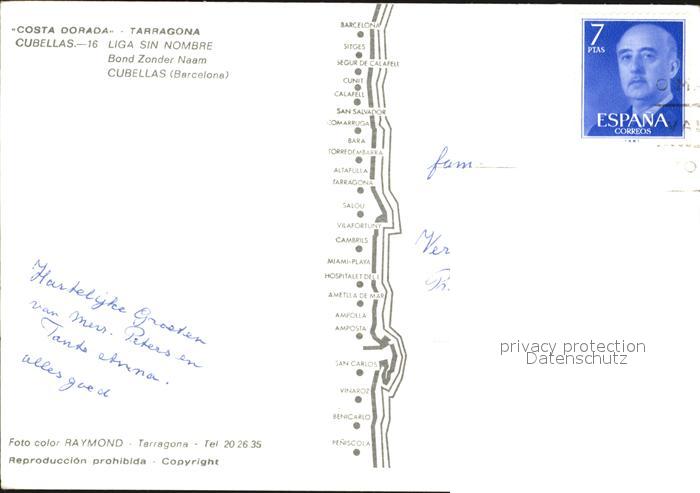 "COSTA DORADA" - TARRAGONA
CUBELLAS.—16 LIGA SIN NOMBRE
Bond Zonder Naam
CUBELLAS (Barcelona)
BARCELONA
SITGES
SEGUR DE CALAFELL
CUNIT
CALAFELL
SAN SALVADOR
COMARRUGA
BARA
TORREDEMBARRA
ALTAFULLA
TARRAGONA
SALOU
VILAFORTUNY
CAMBRILS
MIAMI-PLAYA
HOSPITALET DEL I.
AMETLLA DE MAR
AMPOLLA
AMPOSTA
SAN CARLOS
VINAROZ
BENICARLO
PEÑISCOLA
7
PTAS
ESPAÑA
CORREOS
fam.
Ver
Hartelijke Groeten
van Mevr. Peters en
Tante Anna.
alles goed
privacy protection
Datenschutz
Foto color RAYMOND - Tarragona - Tel 20 26 35
Reproducción prohibida - Copyright